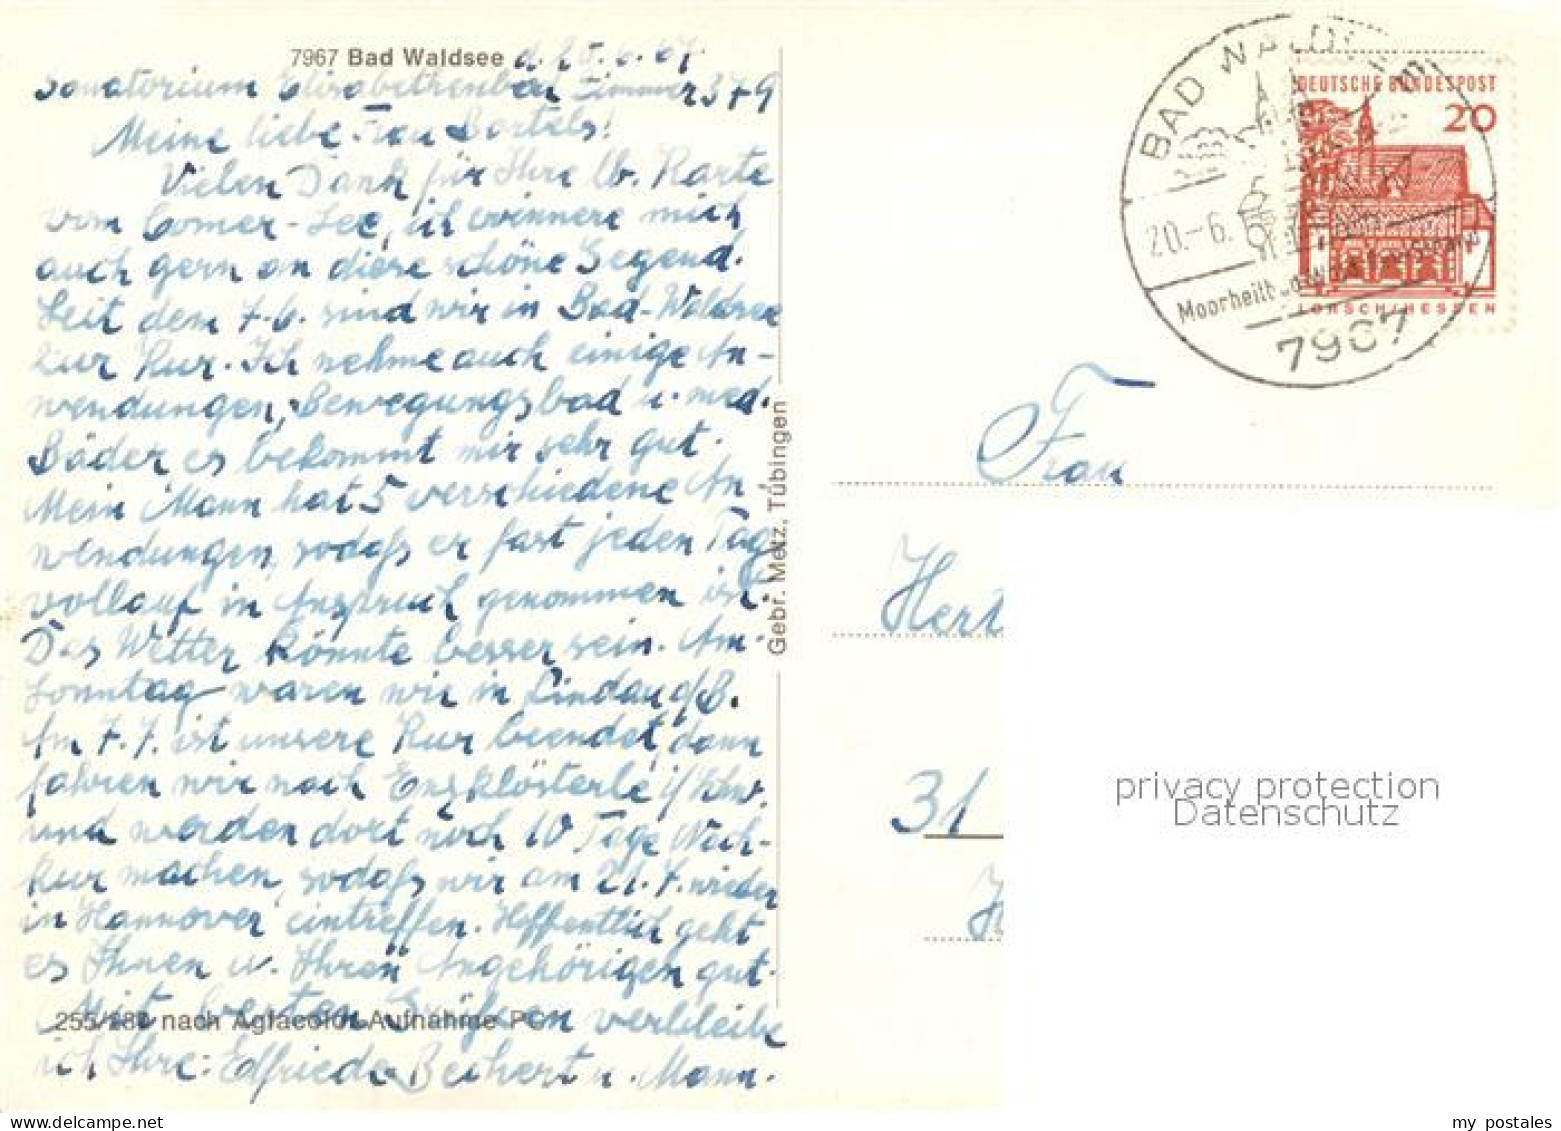 7967 Bad Waldsee d. 20.6.67
Sanatorium Elisabethenbad Zimmer 379
Meine liebe Frau Bartels!
Vielen Dank für Ihre lb. Karte
vom Comer-See, ich erinnere mich
auch gern an diese schöne Gegend.
Seit dem 7.6. sind wir in Bad-Waldsee
zur Kur. Ich nehme auch einige An-
wendungen, Bewegungsbad u. med.
Bäder es bekommt mir sehr gut.
Mein Mann hat 5 verschiedene An-
wendungen, sodaß er fast jeden Tag
vollauf in Anspruch genommen ist.
Das Wetter könnte besser sein. Am-
Sonntag waren wir in Lindau a/B.
Am 7.7. ist unsere Kur beendet, dann
fahren wir nach Enzklösterle i/Schw.
und werden dort noch 10 Tage Nach-
kur machen, sodaß wir am 21.7. wieder
in Hannover eintreffen. Hoffentlich geht
es Ihnen u. Ihren Angehörigen gut.
Mit besten Grüßen verbleibe
ich Ihre: Elfriede Beihert u. Mann.
255/284 nach Agfacolor-Aufnahme PC
Gebr. Metz, Tübingen
BAD WALDSEE
20.-6.
7967
DEUTSCHE BUNDESPOST
20
LORSCH/HESSEN
Frau
Hert
31
H
privacy protection
Datenschutz
my postales